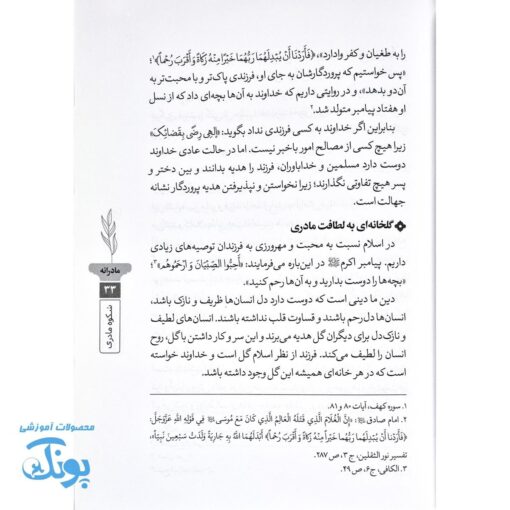 را به طغیان و کفر وادارد»، ﴿فَأَرَدْنَا أَنْ یُبْدِلَهُمَا رَبُّهُمَا خَیْرًا مِنْهُ زَکَاةً وَ أَقْرَبَ رُحْماً﴾۱؛
«پس خواستیم که پروردگارشان به جای او، فرزندی پاک‌تر و با محبت‌تر به
آن‌دو بدهد»، و در روایتی داریم که خداوند به آن‌ها بچه‌ای داد که از نسل
او هفتاد پیامبر متولد شد.۲
بنابراین اگر خداوند به کسی فرزندی نداد بگوید: «إلهِی رِضًی بِقَضائِکَ»
زیرا هیچ کسی از مصالح امور باخبر نیست. اما در حالت عادی خداوند
دوست دارد مسلمین و خداباوران، فرزند را هدیه بدانند و بین دختر و
پسر هیچ تفاوتی نگذارند؛ زیرا نخواستن و نپذیرفتن هدیه پروردگار نشانه
جهالت است.
گلخانه‌ای به لطافت مادری
در اسلام نسبت به محبت و مهرورزی به فرزندان توصیه‌های زیادی
داریم. پیامبر اکرم ﷺ در این‌باره می‌فرمایند: «أَحِبُّوا الصِّبْیَانَ وَ ارْحَمُوهُم»۳؛
«بچه‌ها را دوست بدارید و به آن‌ها رحم کنید».
دین ما دینی است که دوست دارد دل انسان‌ها ظریف و نازک باشد،
انسان‌ها دل‌رحم باشند و قساوت قلب نداشته باشند. انسان‌های لطیف
و نازک‌دل برای دیگران گل هدیه می‌برند و این سر و کار داشتن با گل، روح
انسان را لطیف می‌کند. فرزند از نظر اسلام گل است و خداوند خواسته
است که در هر خانه‌ای همیشه این گل وجود داشته باشد.
مادرانه
۳۳
شکوه مادری
۱. سوره کهف، آیات ۸۰ و ۸۱.
۲. امام صادق: «إنَّ الْغُلَامَ الَّذِي قَتَلَهُ الْعَالِمُ الَّذِي كَانَ مَعَ مُوسَى فِي قَوْلِهِ اللهِ عَزَّوَجَلَّ:
﴿فَأَرَدْنَا أَنْ یُبْدِلَهُمَا رَبُّهُمَا خَیْرًا مِنْهُ زَکَاةً وَ أَقْرَبَ رُحْماً﴾ أَبْدَلَهُمَا اللهُ بِهِ جَارِيَةً وَلَدَتْ سَبْعِينَ نَبِيّاً»،
تفسیر نور الثقلین، ج ۳، ص ۲۸۷.
۳. الکافی، ج ۶، ص ۴۹.
محصولات آموزشی
پونک